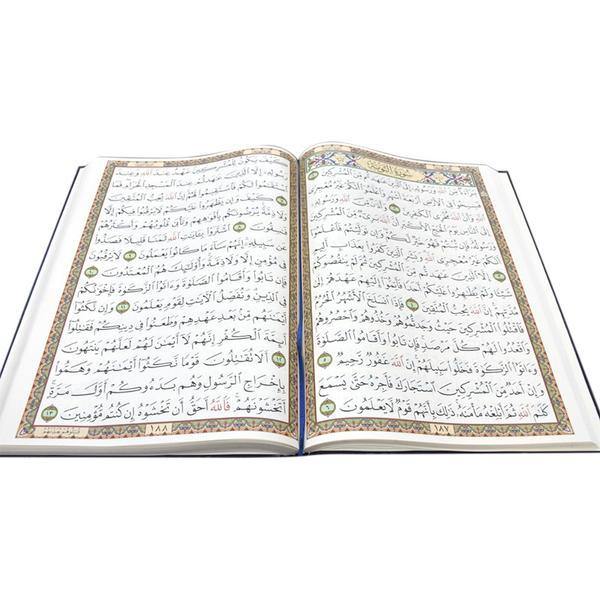 سُورَةُ التَّوْبَةِ
بَرَآءَةٌ مِّنَ اللَّهِ وَرَسُولِهِ إِلَى الَّذِينَ عَاهَدتُّم مِّنَ الْمُشْرِكِينَ ١
فَسِيحُوا فِي الْأَرْضِ أَرْبَعَةَ أَشْهُرٍ وَاعْلَمُوا أَنَّكُمْ غَيْرُ مُعْجِزِي اللَّهِ
وَأَنَّ اللَّهَ مُخْزِي الْكَافِرِينَ ٢ وَأَذَانٌ مِّنَ اللَّهِ وَرَسُولِهِ إِلَى
النَّاسِ يَوْمَ الْحَجِّ الْأَكْبَرِ أَنَّ اللَّهَ بَرِيءٌ مِّنَ الْمُشْرِكِينَ
وَرَسُولُهُ فَإِن تُبْتُمْ فَهُوَ خَيْرٌ لَّكُمْ وَإِن تَوَلَّيْتُمْ فَاعْلَمُوا أَنَّكُمْ
غَيْرُ مُعْجِزِي اللَّهِ وَبَشِّرِ الَّذِينَ كَفَرُوا بِعَذَابٍ أَلِيمٍ
٣ إِلَّا الَّذِينَ عَاهَدتُّم مِّنَ الْمُشْرِكِينَ ثُمَّ لَمْ يَنقُصُوكُمْ
شَيْئًا وَلَمْ يُظَاهِرُوا عَلَيْكُمْ أَحَدًا فَأَتِمُّوا إِلَيْهِمْ عَهْدَهُمْ إِلَى
مُدَّتِهِمْ إِنَّ اللَّهَ يُحِبُّ الْمُتَّقِينَ ٤ فَإِذَا انسَلَخَ الْأَشْهُرُ الْحُرُمُ
فَاقْتُلُوا الْمُشْرِكِينَ حَيْثُ وَجَدتُّمُوهُمْ وَخُذُوهُمْ وَاحْصُرُوهُمْ
وَاقْعُدُوا لَهُمْ كُلَّ مَرْصَدٍ فَإِن تَابُوا وَأَقَامُوا الصَّلَوٰةَ
وَءَاتَوُا الزَّكَوٰةَ فَخَلُّوا سَبِيلَهُمْ إِنَّ اللَّهَ غَفُورٌ رَّحِيمٌ ٥
وَإِنْ أَحَدٌ مِّنَ الْمُشْرِكِينَ اسْتَجَارَكَ فَأَجِرْهُ حَتَّىٰ يَسْمَعَ
كَلَٰمَ اللَّهِ ثُمَّ أَبْلِغْهُ مَأْمَنَهُ ذَٰلِكَ بِأَنَّهُمْ قَوْمٌ لَّا يَعْلَمُونَ ٦
١٨٧
كَيْفَ يَكُونُ لِلْمُشْرِكِينَ
وَرَسُولِهِ إِلَّا الَّذِينَ عَاهَدتُّمْ عِندَ الْمَسْجِدِ الْحَرَامِ فَمَا
اسْتَقَامُوا لَكُمْ فَاسْتَقِيمُوا لَهُمْ إِنَّ اللَّهَ يُحِبُّ الْمُتَّقِينَ ٧
كَيْفَ وَإِن يَظْهَرُوا عَلَيْكُمْ لَا يَرْقُبُوا فِيكُمْ إِلًّا
وَلَا ذِمَّةً يُرْضُونَكُم بِأَفْوَٰهِهِمْ وَتَأْبَىٰ قُلُوبُهُمْ وَأَكْثَرُهُمْ
فَٰسِقُونَ ٨ اشْتَرَوْا بِـَٔايَٰتِ اللَّهِ ثَمَنًا قَلِيلًا فَصَدُّوا
عَن سَبِيلِهِ إِنَّهُمْ سَآءَ مَا كَانُوا يَعْمَلُونَ ٩ لَا يَرْقُبُونَ
فِي مُؤْمِنٍ إِلًّا وَلَا ذِمَّةً وَأُولَٰٓئِكَ هُمُ الْمُعْتَدُونَ ١٠
فَإِن تَابُوا وَأَقَامُوا الصَّلَوٰةَ وَءَاتَوُا الزَّكَوٰةَ فَإِخْوَٰنُكُمْ
فِي الدِّينِ وَنُفَصِّلُ الْءَايَٰتِ لِقَوْمٍ يَعْلَمُونَ ١١ وَإِن نَّكَثُوا
أَيْمَٰنَهُم مِّن بَعْدِ عَهْدِهِمْ وَطَعَنُوا فِي دِينِكُمْ فَقَٰتِلُوا
أَئِمَّةَ الْكُفْرِ إِنَّهُمْ لَآ أَيْمَٰنَ لَهُمْ لَعَلَّهُمْ يَنتَهُونَ
١٢ أَلَا تُقَٰتِلُونَ قَوْمًا نَّكَثُوا أَيْمَٰنَهُمْ وَهَمُّوا
بِإِخْرَاجِ الرَّسُولِ وَهُم بَدَءُوكُمْ أَوَّلَ مَرَّةٍ
أَتَخْشَوْنَهُمْ فَاللَّهُ أَحَقُّ أَن تَخْشَوْهُ إِن كُنتُم مُّؤْمِنِينَ ١٣
١٨٨